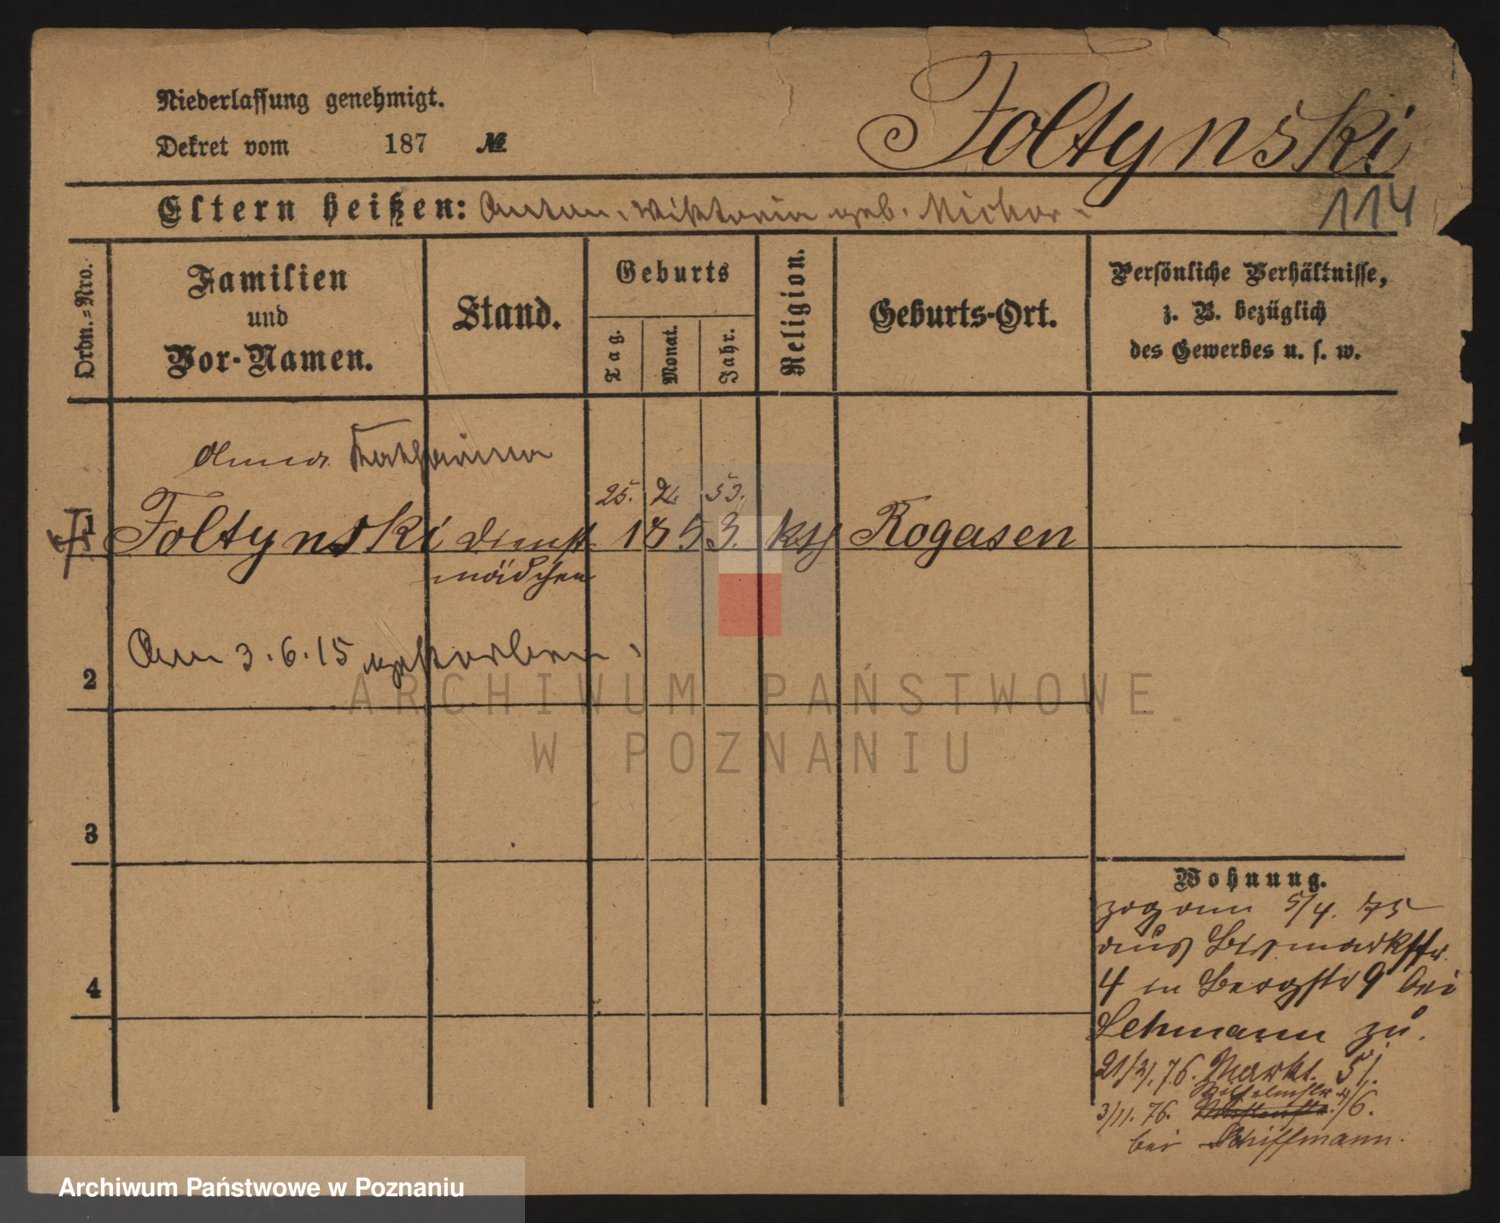 Niederlassung genehmigt.
Dekret vom 187 №
Foltynski
114
Eltern heißen: Anton, Wiktoria geb. Michor
Ordn.-Nro.
Familien
und
Vor-Namen.
Stand.
Geburts
Tag.
Monat.
Jahr.
Religion.
Geburts-Ort.
Persönliche Verhältnisse,
z. B. bezüglich
des Gewerbes u. s. w.
Anna Katharina
25. 53.
1 Foltynski Dienst 1853. kth Rogasen
mädchen
Am 3.6.15 gestorben.
2
3
4
Wohnung.
zog am 5/4. 75
aus Bismarkstr.
4 in Bergstr 9 bei
Lehmann zu.
21/3. 76. Markt 51.
Wilhelmstr.
3/11. 76. 6.
bei Schiffmann.
ARCHIWUM PAŃSTWOWE
W POZNANIU
Archiwum Państwowe w Poznaniu